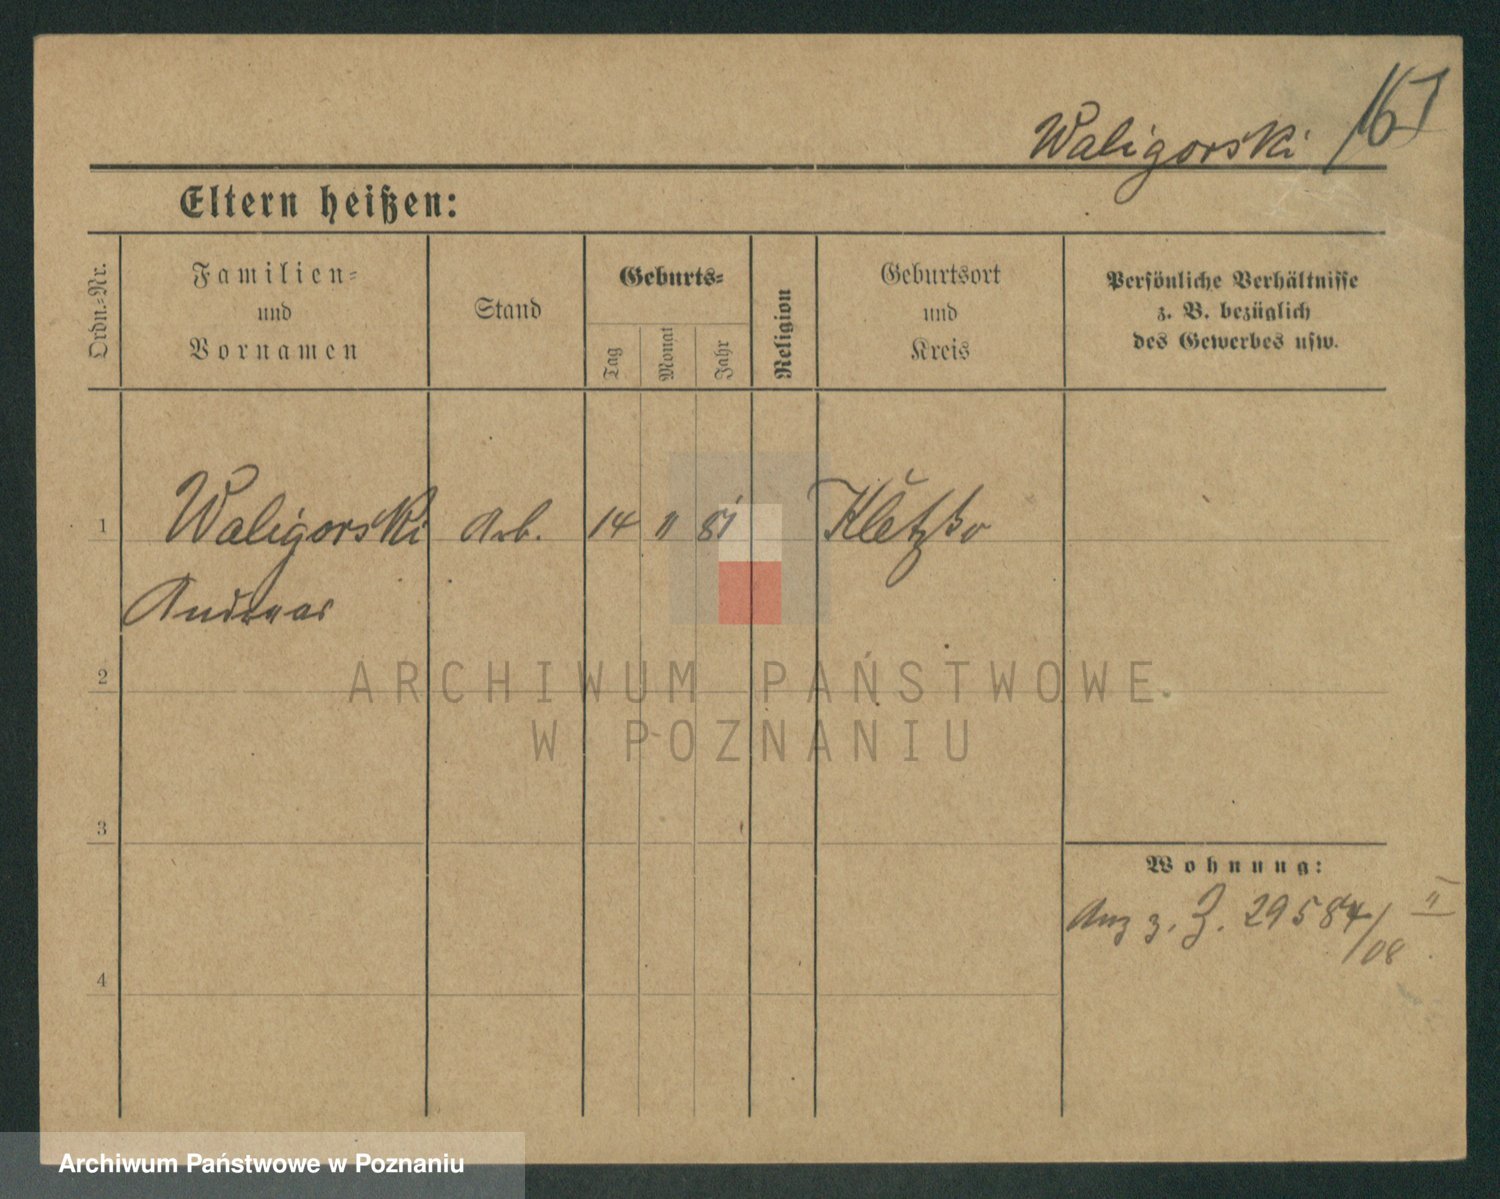 Waligorski 161
Eltern heißen:
Ordn.-Nr.
Familien-
und
Vornamen
Stand
Geburts-
Tag
Monat
Jahr
Religion
Geburtsort
und
Kreis
Persönliche Verhältnisse
z. B. bezüglich
des Gewerbes usw.
1 Waligorski Arb. 14 11 81 Kletzko
Andreas
2
ARCHIWUM PAŃSTWOWE
W POZNANIU
3
Wohnung:
Anz z. Z. 29584/08 II
4
Archiwum Państwowe w Poznaniu